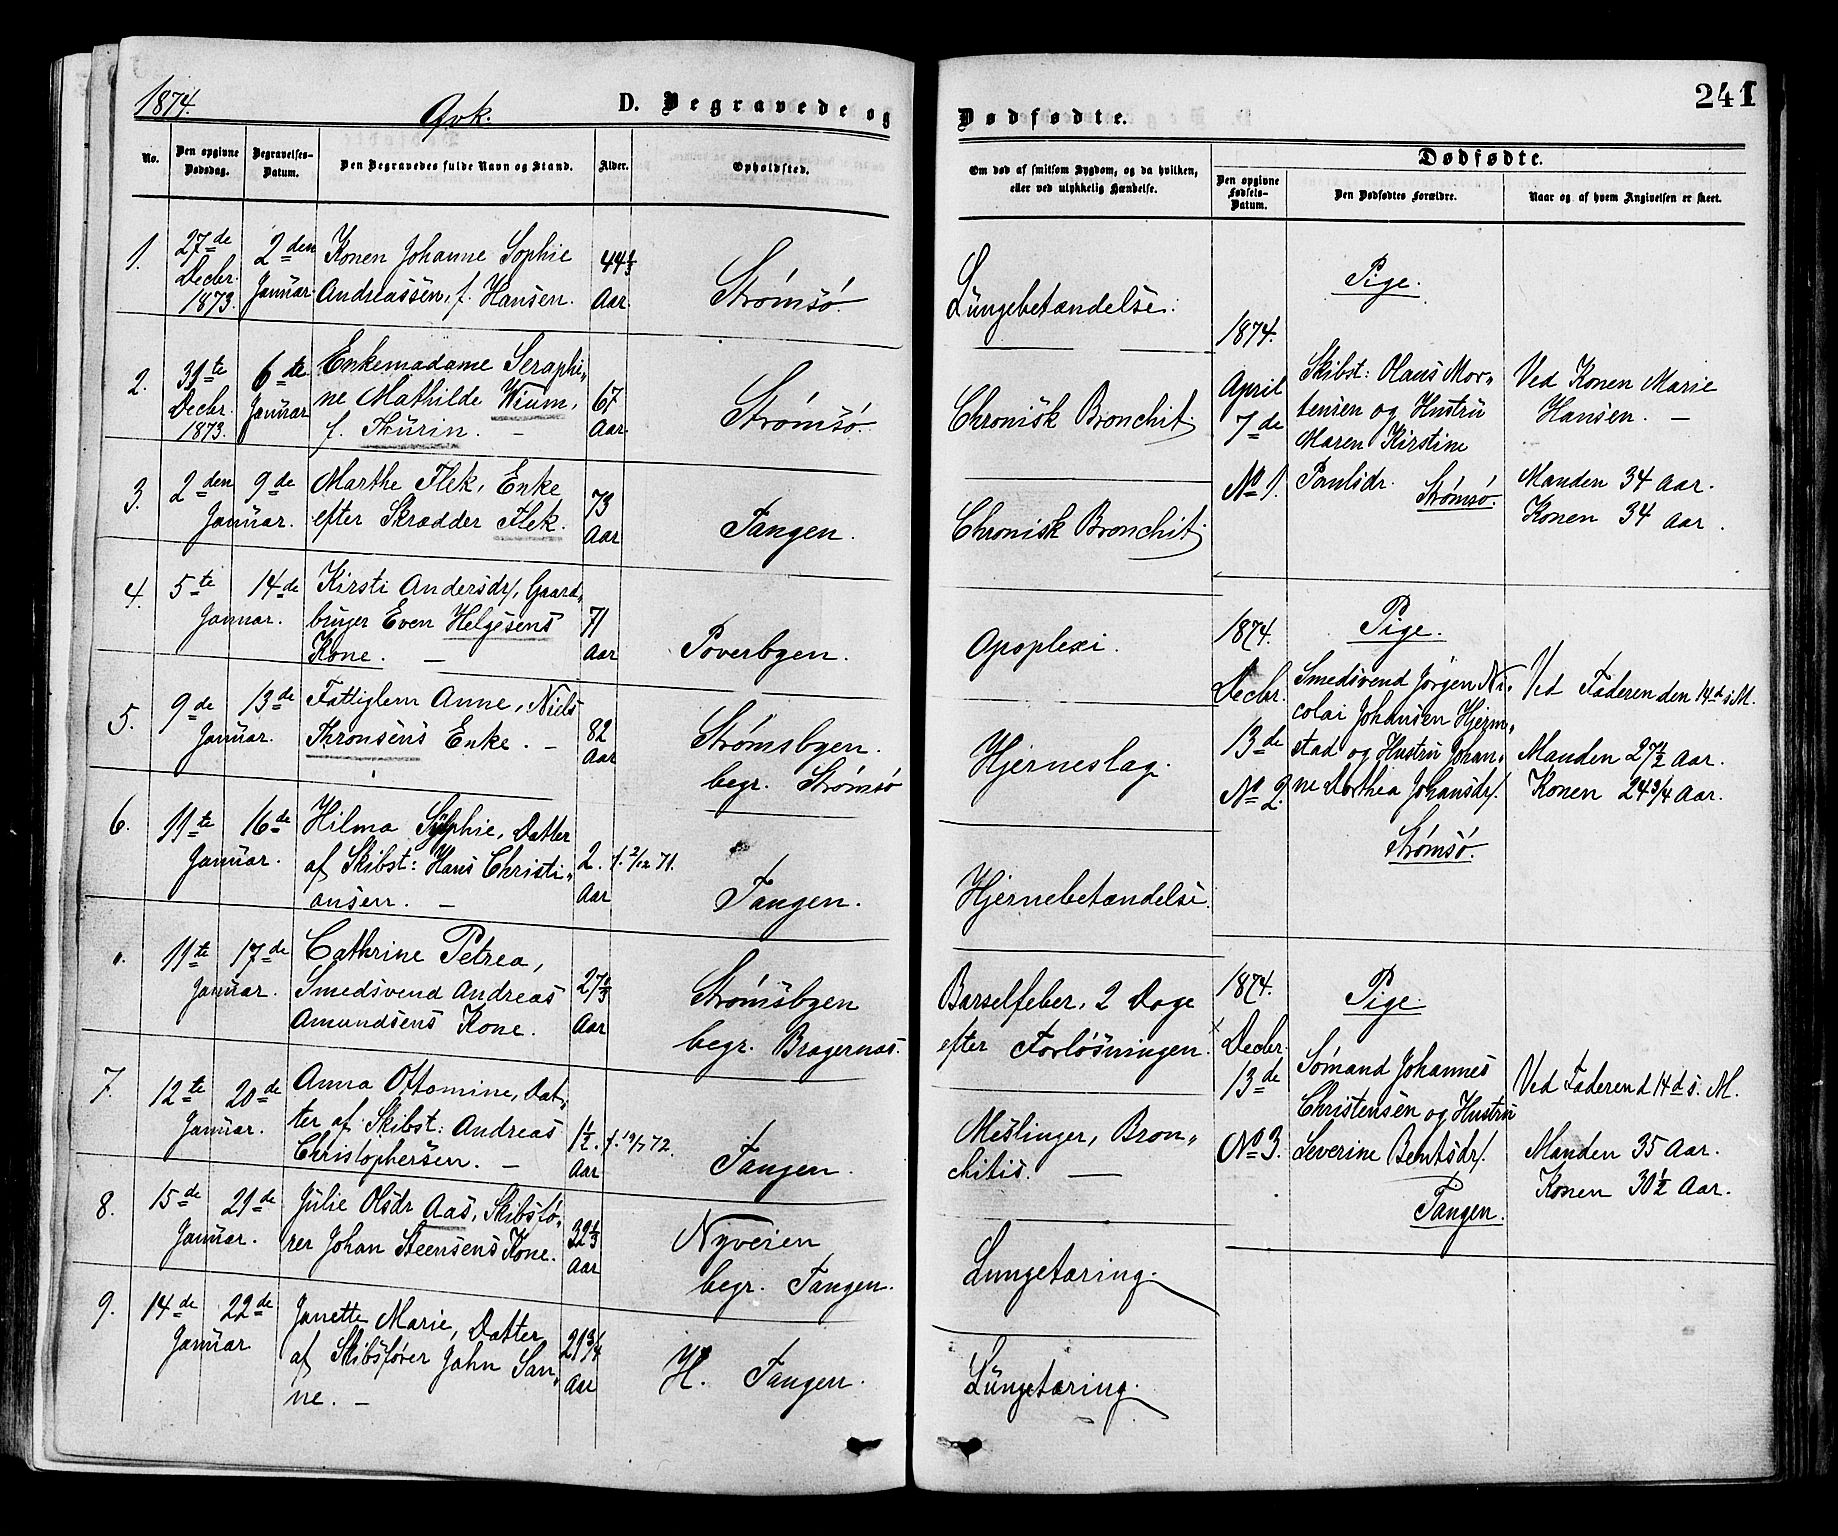 1874.
Qvk.
D. Begravede og
No.
Den opgivne Dødsdag.
Begravelses-Datum.
Den Begravedes fulde Navn og Stand.
Alder.
Opholdssted.
1.
27de Decbr. 1873.
2den Januar.
Konen Johanne Sophie
Andreassen, f. Hansen.
44 1/3 Aar.
Strømsø.
2.
31te Decbr. 1873.
6te Januar
Enkemadame Seraphi-
ne Mathilde Wium,
f. Thurin. —
67 Aar.
Strømsø.
3.
2den Januar.
9de
Marthe Flek, Enke
efter Skrædder Flek.
73 Aar
Tangen.
4.
5te Januar.
14de
Kirsti Andersdr., Gaard-
bruger Even Helgesens
Kone. —
71 Aar
Poverbyen.
5.
9de Januar.
13de
Fattiglem Anne, Niels
Thronsens Enke. —
82 Aar
Strømsbyen.
begr. Strømsø
6.
11te Januar.
16de
Hilma Sylphie, Datter
af Skibst: Hans Christi-
ansen. —
2. Aar
f. 2/12 71.
Tangen.
11te Januar.
17de
Cathrine Petrea,
Smedsvend Andreas
Amundsens Kone.
27 2/3 Aar
Strømsbyen
begr. Bragernæs.
7.
12te Januar.
20de
Anna Ottomine, Dat-
ter af Skibst: Andreas
Christophersen. —
1 1/2. Aar
f. 19/7 72.
Tangen.
8.
15de Januar.
21de
Julie Olsdr Aas, Skibsfø-
rer Johan Steensens Kone.
32 1/3 Aar
Nyveien
begr. Tangen.
9.
14de Januar
22de
Janette Marie, Datter
af Skibsfører John San-
ne. —
21 3/4 Aar
H. Tangen.
241
Dødfødte.
Om død af smitsom Sygdom, og da hvilken,
eller ved ulykkelig Hændelse.
Dødfødte.
Den opgivne Fødsels-Datum.
Den Dødfødtes Forældre.
Naar og af hvem Angivelsen er skeet.
Lungebetændelse.
Chronisk Bronchit.
Chronisk Bronchit.
Apoplexi.
Hjerneslag.
Hjernebetændelse.
Barselfeber, 2 Dage
efter Forløsningen.
Meslinger, Bron-
chitis. —
Lungetæring.
Lungetæring.
1874.
April
7de
No 1.
Pige.
Skibst: Olaus Mor-
tensen og Hustru
Maren Kirstine
Paulsdr.
Strømsø.
Ved Konen Marie
Hansen. —
Manden 34 Aar.
Konen 34 Aar.
1874.
Decbr.
13de
No 2.
Pige.
Smedsvend Jørgen Ni-
colai Johansen Hjerm-
stad og Hustru Johan-
ne Dorthea Johansdr.
Strømsø.
Ved Faderen den 14d s. M.
Manden 27 1/2 Aar.
Konen 24 3/4 Aar.
1874.
Decbr.
13de
No 3.
Pige.
Sømand Johannes
Christensen og Hustru
Severine Bentsdr.
Tangen.
Ved Faderen d 14d s. M.
Manden 35 Aar.
Konen 30 1/2 Aar.